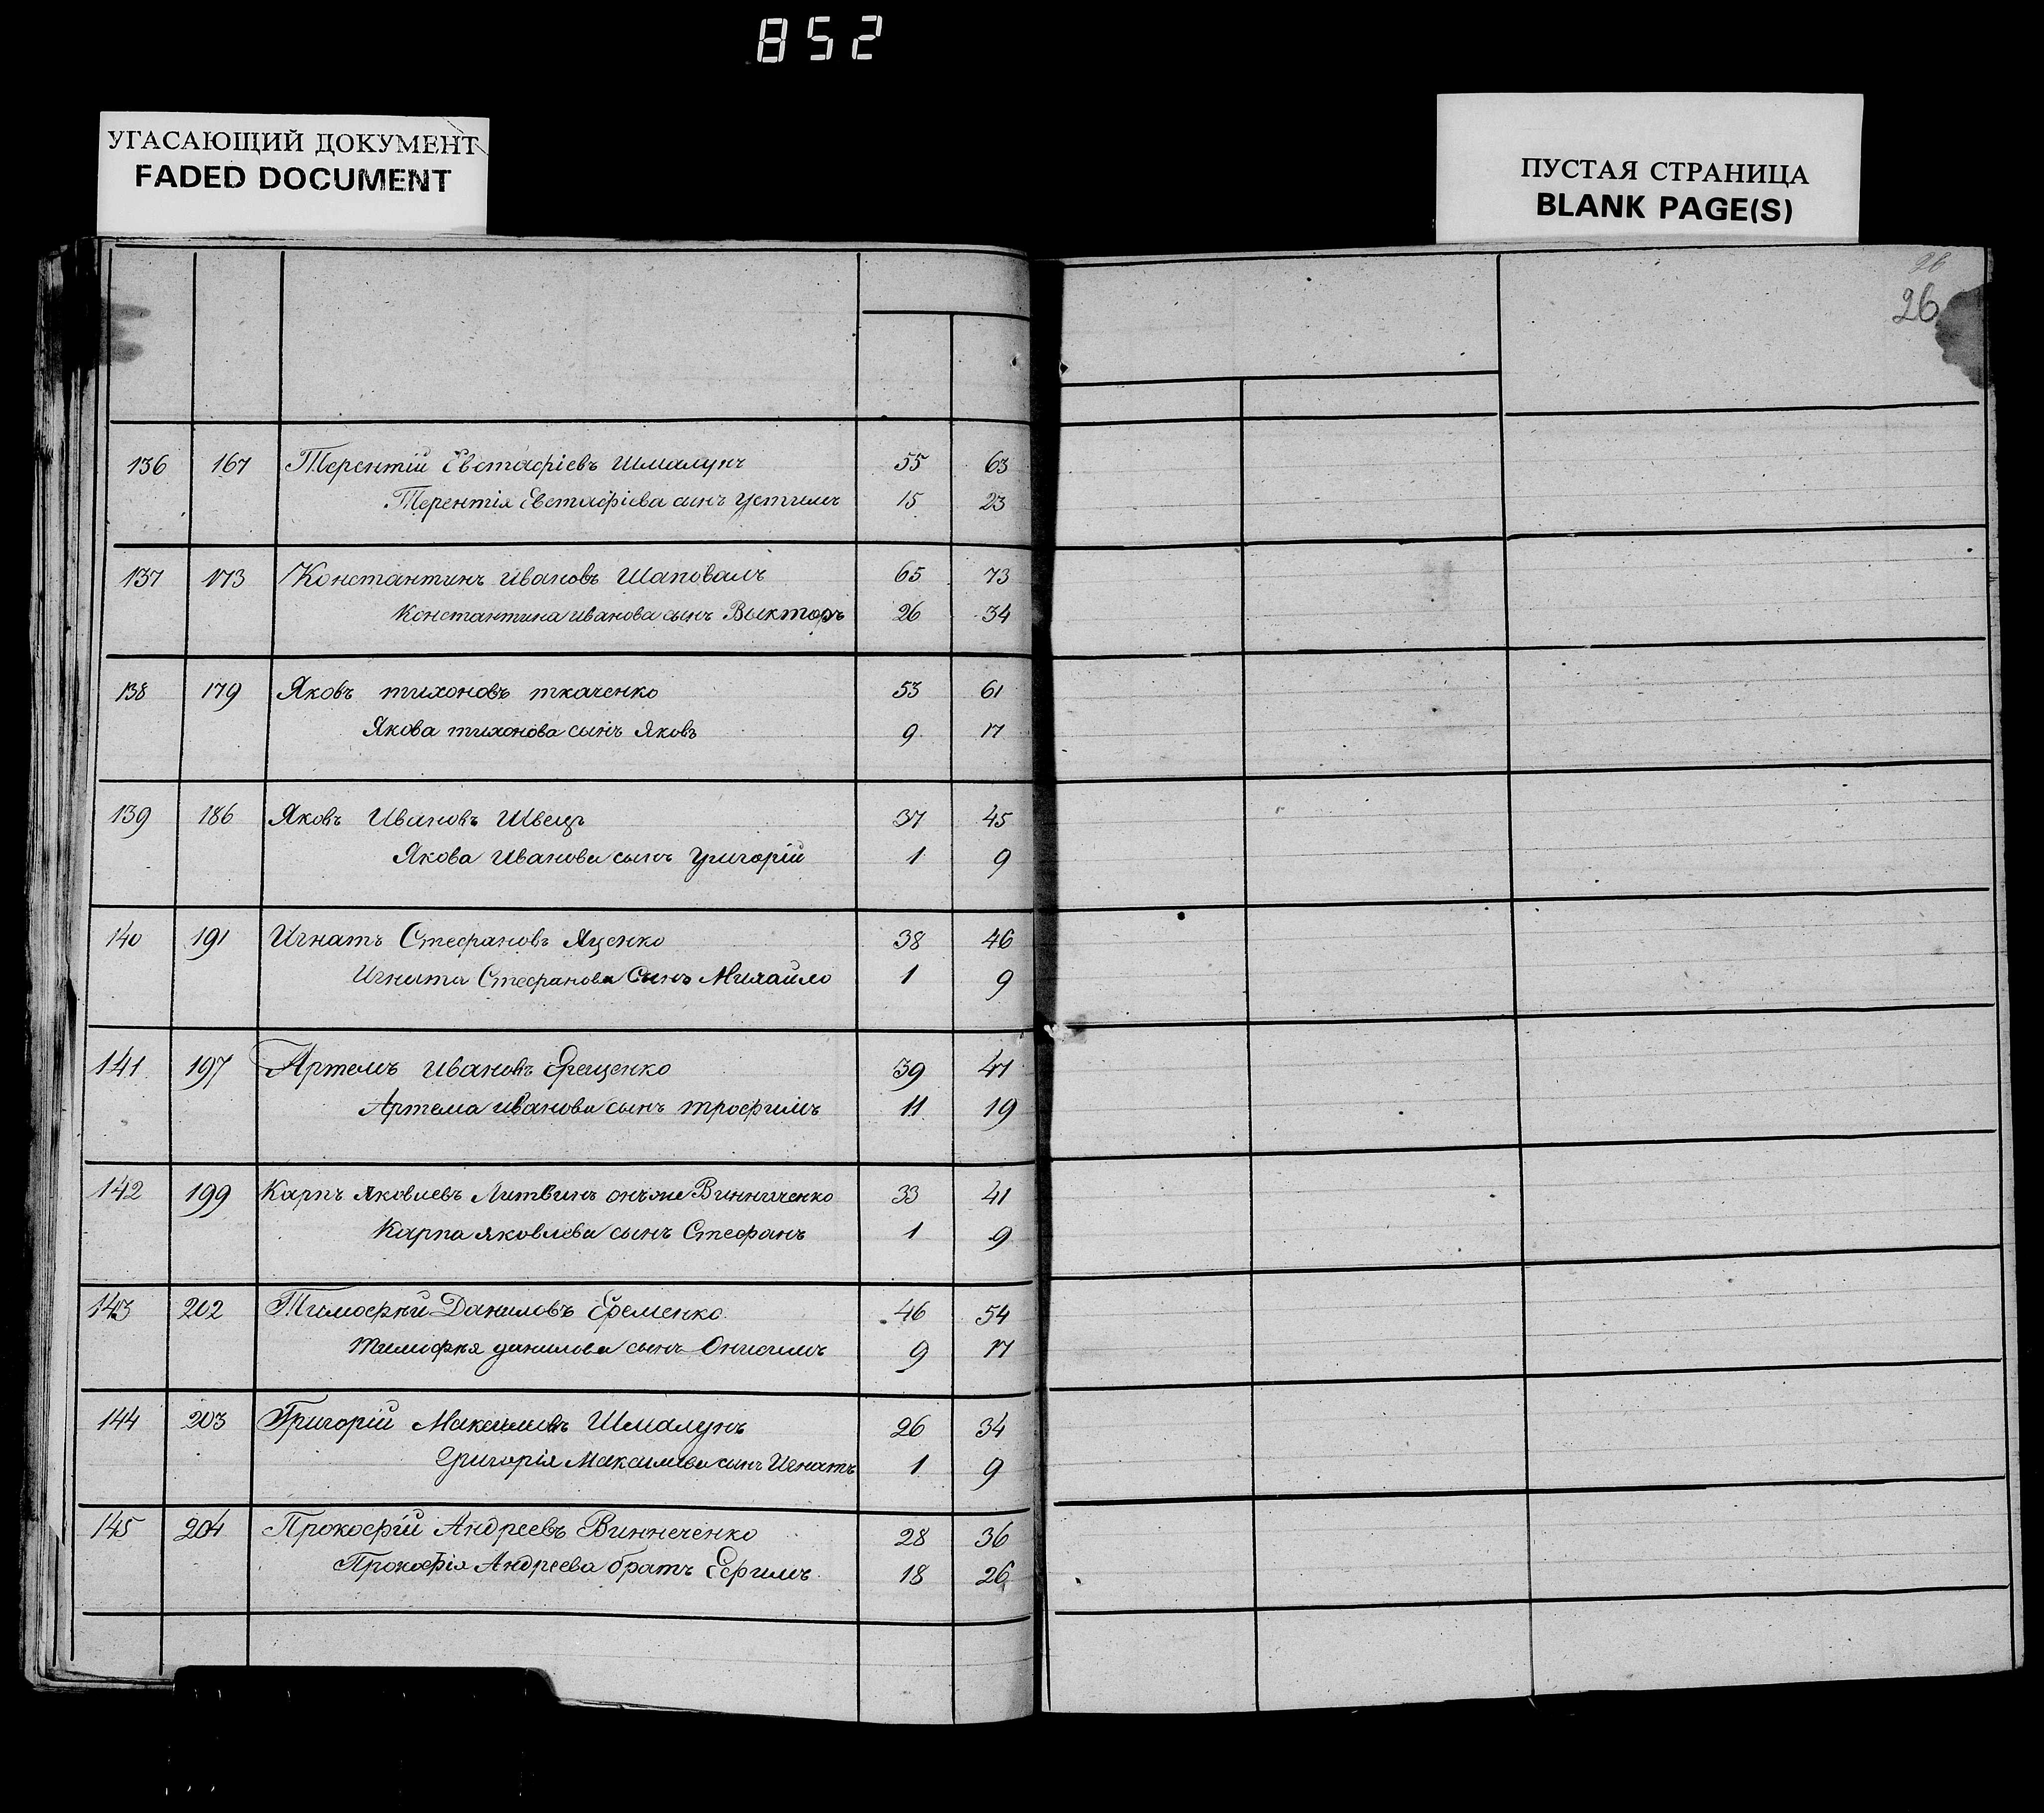 852
УГАСАЮЩИЙ ДОКУМЕНТ
FADED DOCUMENT
ПУСТАЯ СТРАНИЦА
BLANK PAGE(S)
26
26
136 167 Терентій Евстафіевъ Шмалунъ 55 63
Терентія Евстафіева сынъ Устимъ 15 23
137 173 Константинъ Ивановъ Шаповалъ 65 73
Константина Иванова сынъ Выкторъ 26 34
138 179 Яковъ тихоновъ ткаченко 53 61
Якова тихонова сынъ Яковъ 9 17
139 186 Яковъ Ивановъ Швецъ 37 45
Якова Иванова сынъ Григорій 1 9
140 191 Игнатъ Стефановъ Яценко 38 46
Игната Стефанова Сынъ Михайло 1 9
141 197 Артемъ Ивановъ 39
Артема Иванова сынъ трофимъ 11 19
142 199 Карпъ Яковлевъ Литвинъ онъже Винниченко 33 41
Карпа Яковлева сынъ Стефанъ 1 9
143 202 Тимофѣй Даниловъ Еременко 46 54
Тимофѣя данилова сынъ Онисимъ 9 17
144 203 Григорій Максимовъ Шмалунъ 26 34
Григорія Максимова сынъ Игнатъ 1 9
145 204 Прокофій Андреевъ Виннеченко 28 36
Прокофія Андреева братъ Ефимъ 18 26